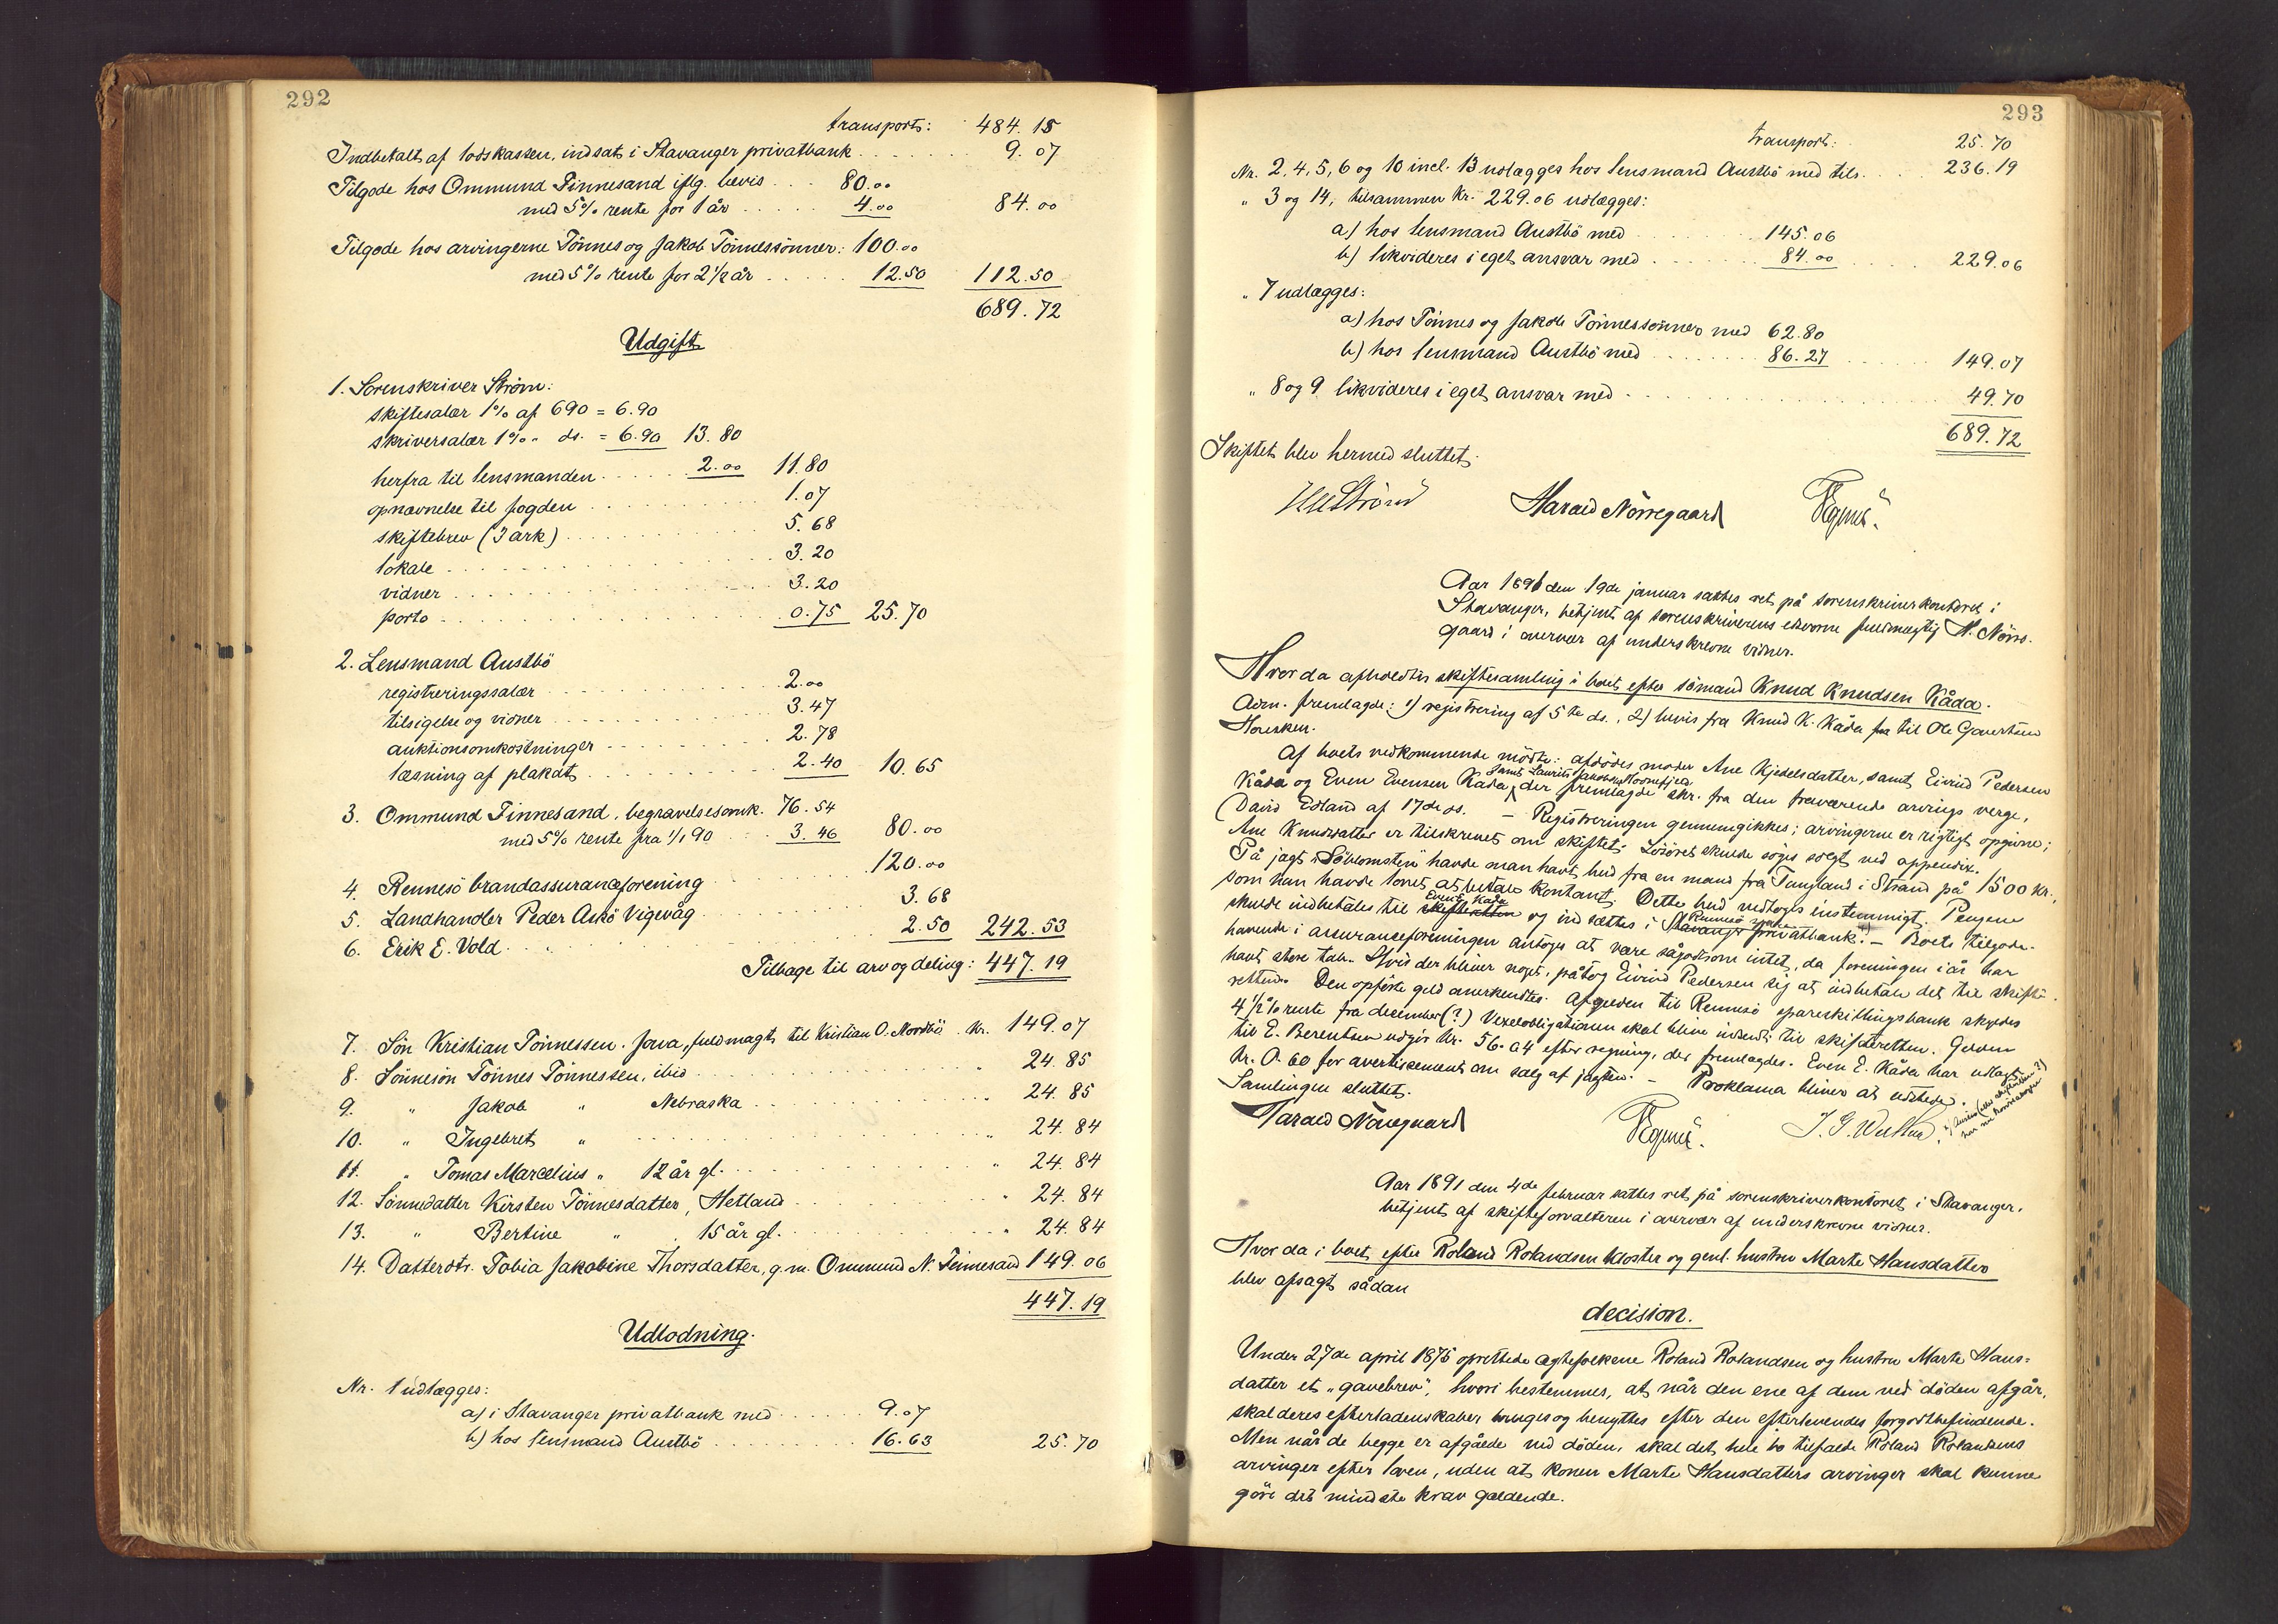 292
transport: 484.15
Indbetalt af lodskassen, indsat i Stavanger privatbank 9.07
Tilgode hos Ommund Finnesand iflg. bevis 80.00
med 5% rente for 1 år 4.00 84.00
Tilgode hos arvingerne Tönnes og Jakob Tönnessönner: 100.00
med 5% rente for 2½ år 12.50 112.50
689.72
Udgift
1. Sorenskriver Ström:
skiftesalær 1% af 690 = 6.90
skriversalær 1% " ds. = 6.90 13.80
herfra til lensmanden 2.00 11.80
opnævnelse til fogden 1.07
skiftebrev (3 ark) 5.68
lokale 3.20
vidner 3.20
porto 0.75 25.70
2. Lensmand Austbö
registreringssalær 2.00
tilsigelse og vidner 3.47
auktionsomkostninger 2.78
læsning af plakat 2.40 10.65
3. Ommund Finnesand, begravelsesomk. 76.54
med 5% rente fra 1/1 90 3.46 80.00
4. Rennesö brandassuranceforening 120.00
5. Landhandler Peder Askö Vigevåg 3.68
6. Erik E. Vold 2.50 242.53
Tilbage til arv og deling: 447.19
7. Sön Kristian Tönnessen. Java, fuldmagt til Kristian O. Nordbö. Kr. 149.07
8. Sönnesön Tönnes Tönnessen, ibid " 24.85
9. " Jakob " Nebraska " 24.85
10. " Ingebret " " 24.84
11. " Tomas Marcelius " 12 år gl. " 24.84
12. Sönnedatter Kirsten Tönnesdatter, Hetland " 24.84
13. " Bertine " 15 år gl. " 24.84
14. Datterdtr. Tobia Jakobine Thorsdatter, g.m. Ommund N. Finnesand 149.06
447.19
Udlodning.
Nr. 1 udlægges:
a) i Stavanger privatbank med 9.07
b) hos lensmand Austbö 16.63 25.70
293
transport: 25.70
Nr. 2, 4, 5, 6 og 10 incl. 13 udlægges hos lensmand Austbö med tils. 236.19
" 3 og 14, tilsammen Kr. 229.06 udlægges:
a) hos lensmand Austbö med 145.06
b) likvideres i eget ansvar med 84.00 229.06
" 7 udlægges:
a) hos Tönnes og Jakob Tönnessönner med 62.80
b) hos lensmand Austbö med 86.27 149.07
" 8 og 9 likvideres i eget ansvar med 49.70
689.72
Skiftet blev hermed sluttet.
Ström Harald Nörregaard
Aar 1891 den 19de januar sattes ret på sorenskriverkontoret i
Stavanger, betjent af sorenskriverens edsvorne fuldmægtig H. Nörre-
gaard i overvær af underskrevne vidner.
Hvor da afholdtes skiftesamling i boet efter sömand Knud Knudsen Kåda.
Adm. fremlagde: 1) registrering af 5te ds., 2) bevis fra Knud K. Kåda til Ole Govertsen
Af boets vedkommende mödte: afdödes moder Ane Kjedelsdatter, samt Eivind Pedersen
Kåda og Even Evensen Kåda, samt Laurits Jakobsen der fremlagde skr. fra den fraværende arvings verge,
David Edland af 17de ds. – Registreringen gennemgikkes; arvingerne er rigtigt opgivne;
Ane Knudsdatter er tilskrevet om skiftet. Lösöret skulde söges solgt ved appendix.
På jagt "Söblomsten" havde man havt bud fra en mand fra Tungland i Strand på 1500 kr.,
som han havde lovet at betale kontant. Dette bud vedtoges enstemmigt. Pengene
skulde indbetales til Even E. Kåda og indsættes i Rennesö Stavanger privatbank. – Boets tilgode-
havende i assuranceforeningen antoges at være sågodtsom intet, da foreningen i år har
havt store tab. Hvis der bliver noget, påtog Eivind Pedersen sig at indbetale det til skifte-
retten. Den opförte gjeld anerkendtes. Afgjelden til Rennesö spareskillingsbank skyldes
4½% rente fra december (?) Vexelobligationen skal blive indsendt til skifteretten. Gjelden
til E. Berentsen udgjör Kr. 56.04 efter regning, der fremlagdes. Even E. Kåda har udlagt
Kr. 0.60 for avertissement om salg af jagten. – Proklama bliver at udstede.
Samlingen sluttet.
Harald Nörregaard
Aar 1891 den 4de februar sattes ret på sorenskriverkontoret i Stavanger,
betjent af skifteforvalteren i overvær af underskrevne vidner.
Hvor da i boet efter Roland Rolandsen Kloster og gjenl. hustru Marte Hansdatter
blev afsagt sådan
decision.
Under 27de april 1875 oprettede ægtefolkene Roland Rolandsen og hustru Marte Hans-
datter et "gavebrev", hvori bestemmes, at når den ene af dem ved döden afgår,
skal deres efterladenskaber bruges og benyttes efter den efterlevendes forgodtbefindende.
Men når de begge er afgåede ved döden, skal det hele bo tilfalde Roland Rolandsens
arvinger efter loven, uden at konen Marte Hansdatters arvinger skal kunne
göre det mindste krav gældende.